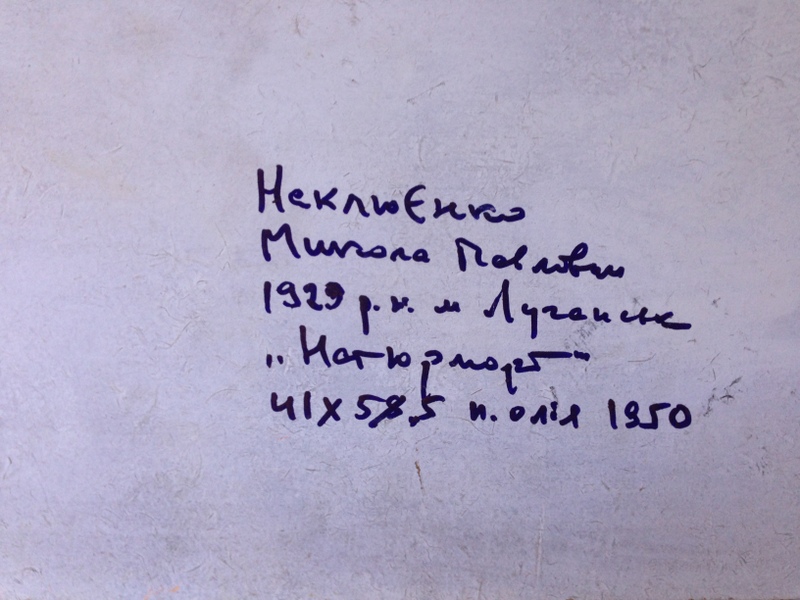 НеклюЄнко
Микола Павлович
1929 р.н. м Луганськ
„Натюрморт"
41х58,5 к. олія 1950